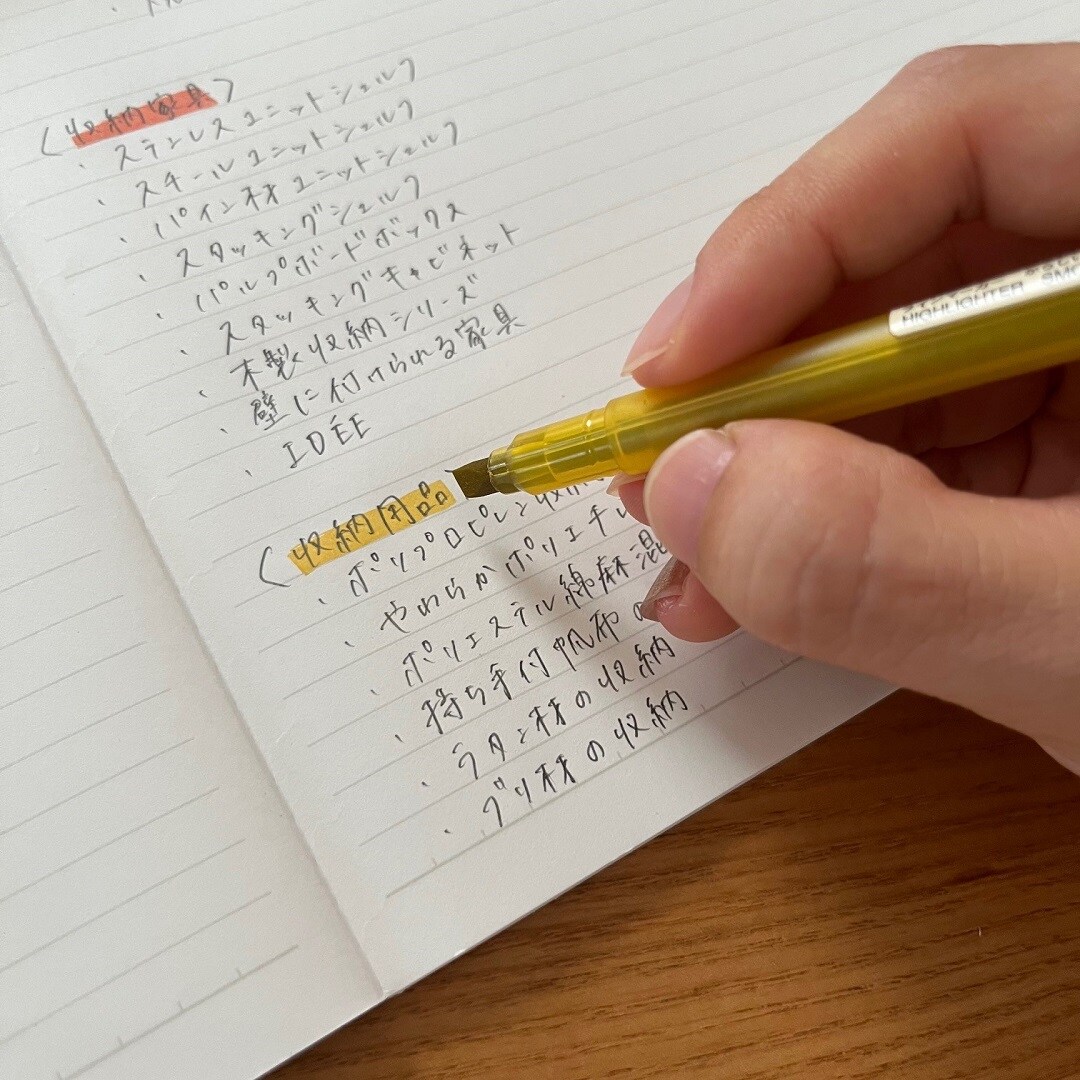 〈収納家具〉
・ステンレスユニットシェルフ
・スチールユニットシェルフ
・パイン材ユニットシェルフ
・スタッキングシェルフ
・パルプボードボックス
・スタッキングキャビネット
・木製収納シリーズ
・壁に付けられる家具
・IDÉE
〈収納用品
・ポリプロピレン収納
・やわらかポリエチレ
・ポリエステル綿麻混
・持ち手付帆布の
・ラタン材の収納
・ブリ材の収納
HIGHLIGHTER